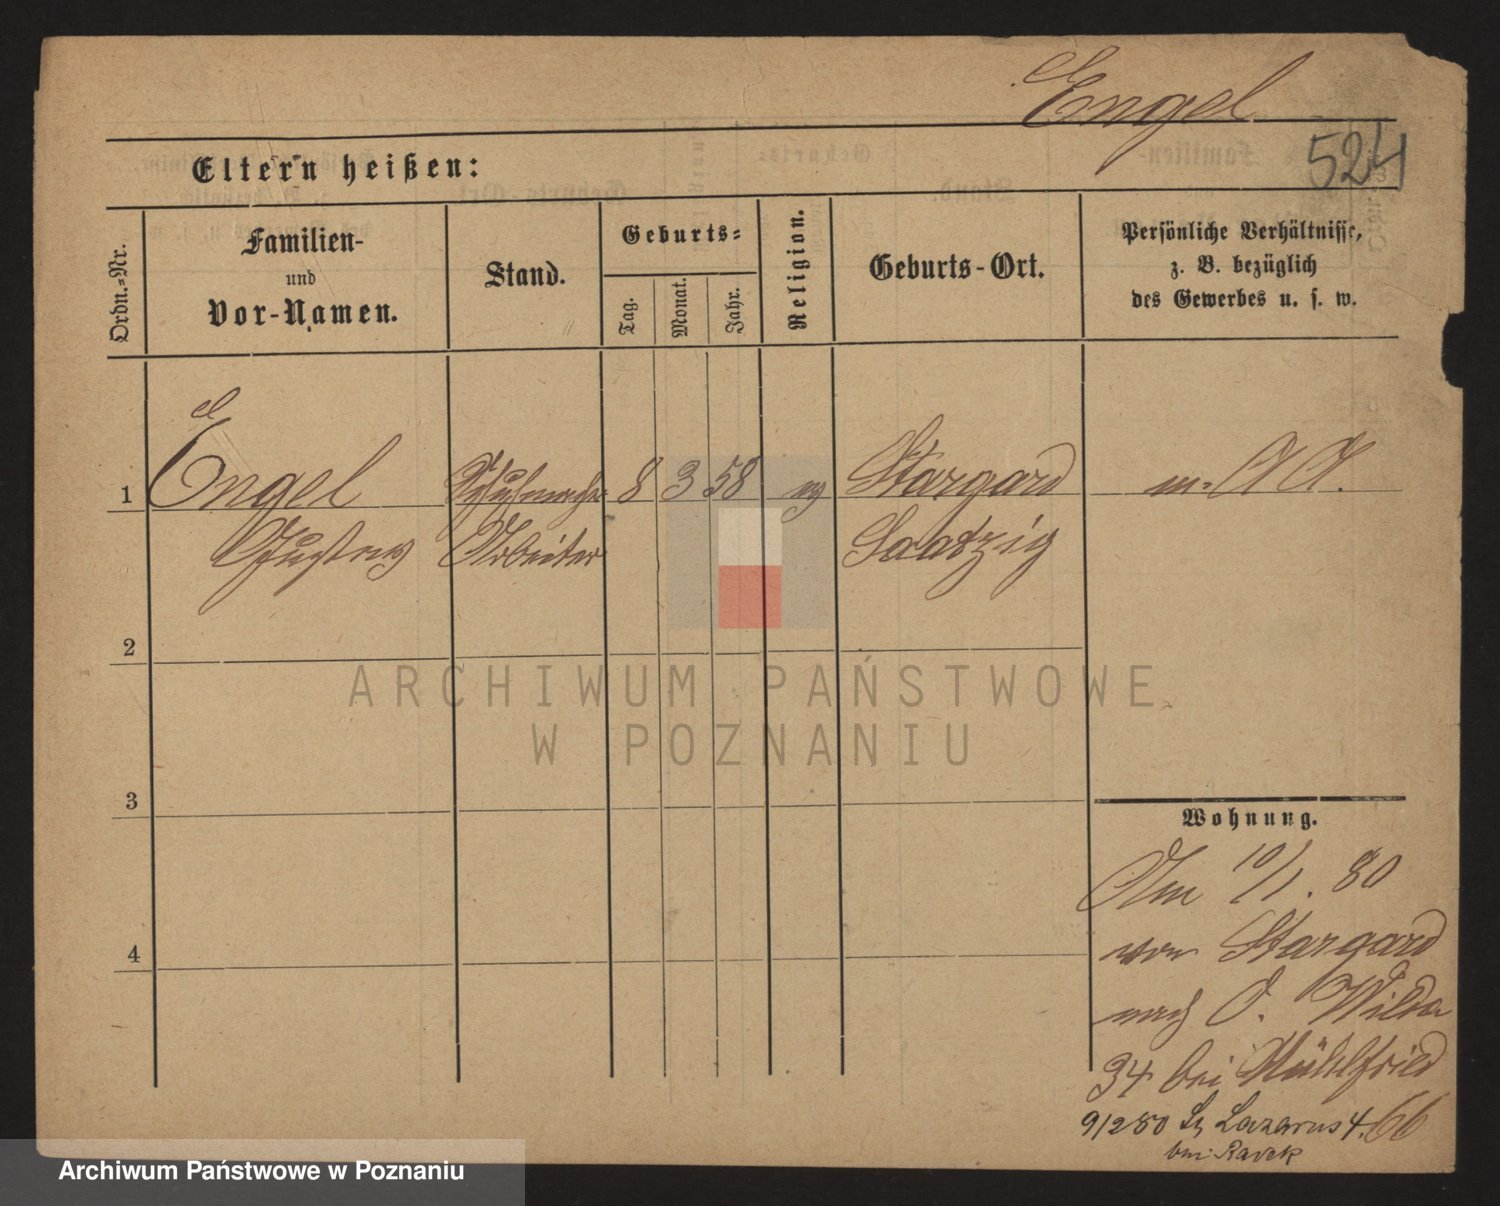 Engel
524
Eltern heißen:
Ordn.-Nr.
Familien-
und
Vor-Namen.
Stand.
Geburts-
Tag.
Monat.
Jahr.
Religion.
Geburts-Ort.
Persönliche Verhältnisse,
z. B. bezüglich
des Gewerbes u. s. w.
1 Engel Schuhmacher 8 3 58 ev Stargard m. A A.
Gustav Arbeiter Saatzig
2
3
4
Wohnung.
Am 10/1. 80
von Stargard
nach O. Wilda
34 bei Mühlfried
9/2 80 St Lazarus 4. 66
bei Ravek
ARCHIWUM PAŃSTWOWE
W POZNANIU
Archiwum Państwowe w Poznaniu